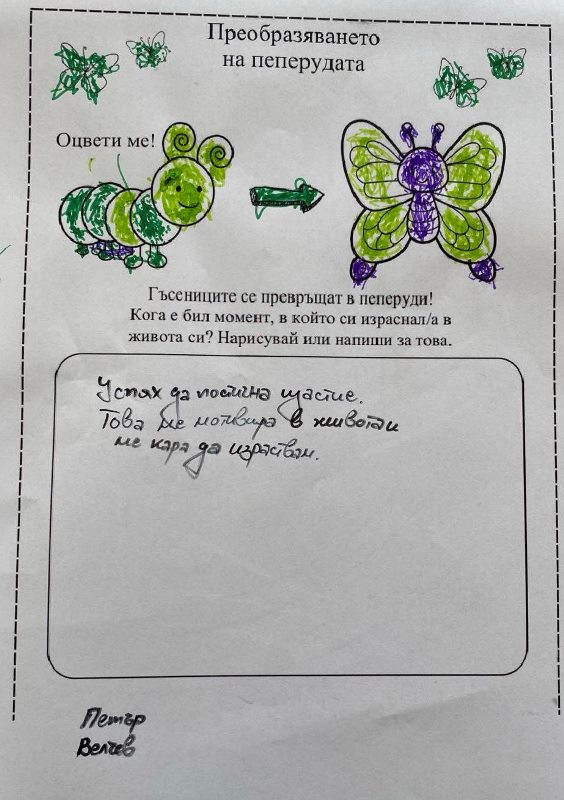 Преобразяването
на пеперудата
Оцвети ме!
Гъсениците се превръщат в пеперуди!
Кога е бил момент, в който си израснал/а в
живота си? Нарисувай или напиши за това.
Успях да постигна щастие.
Това ме мотивира в живота и
ме кара да израствам.
Петър
Велчев